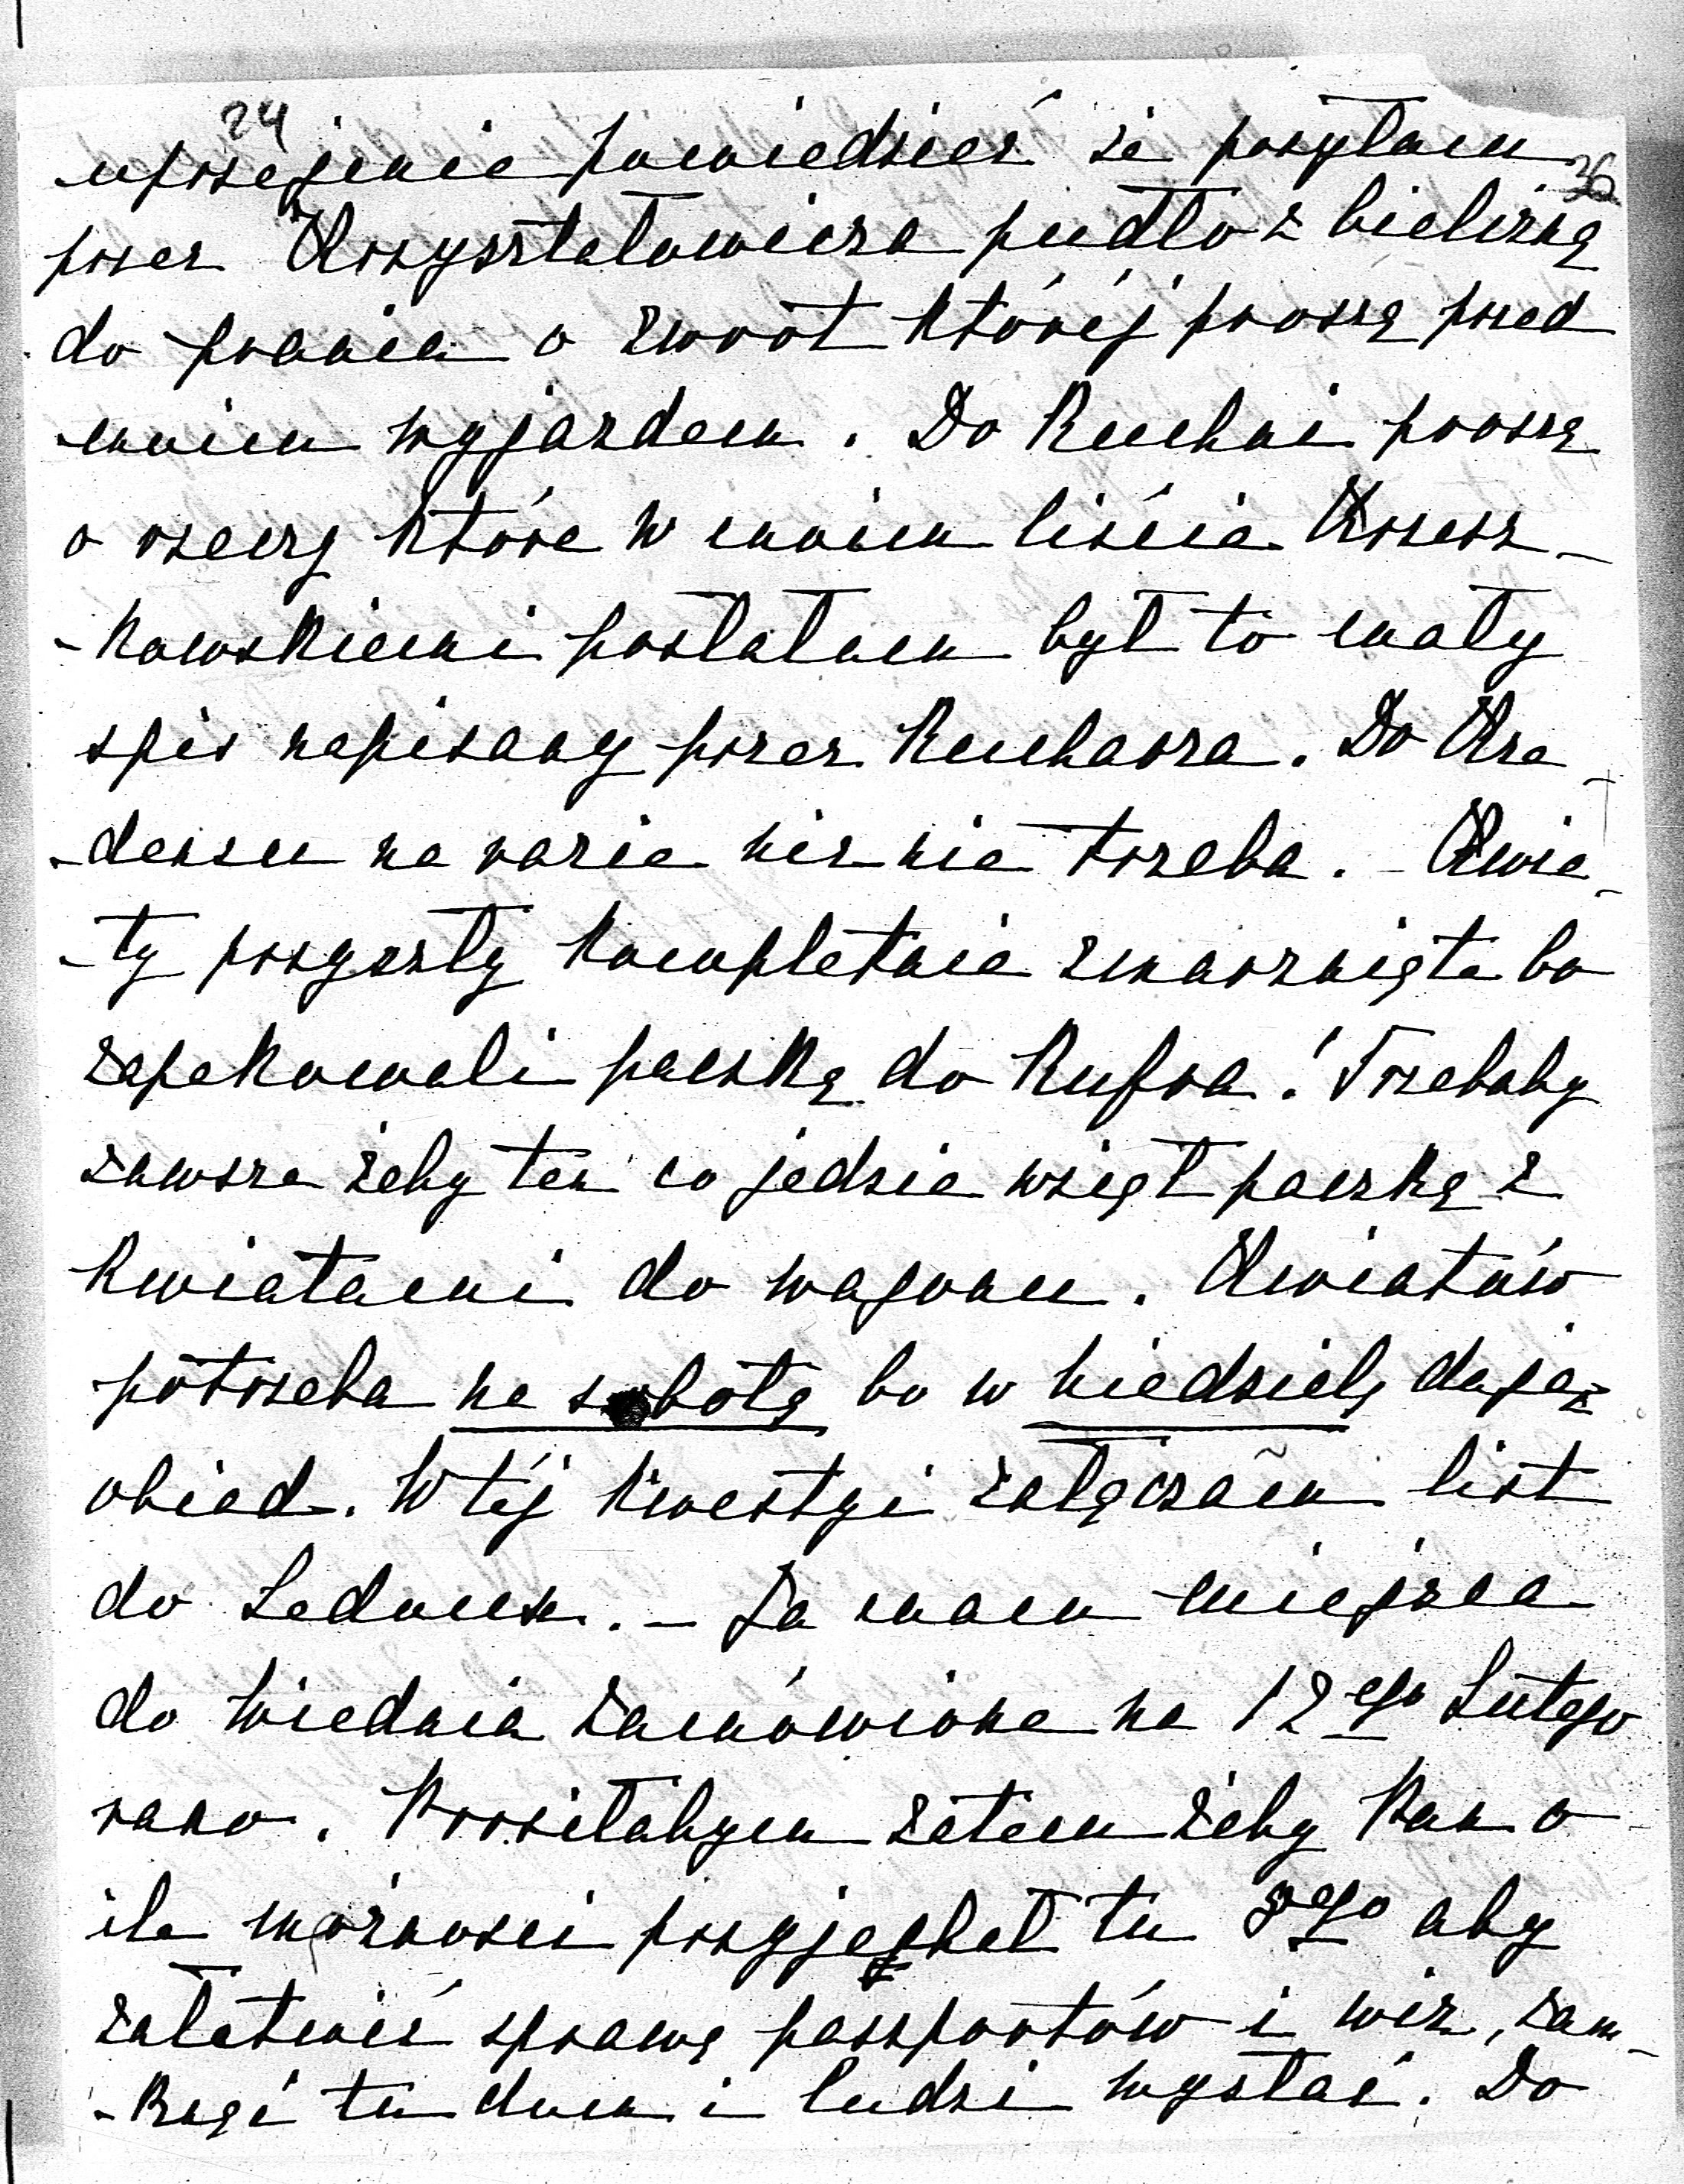 24
uprzejmie powiedzieć że posyłam
36
przez Krzyształowicza pudło z bielizną
do prania o zwrot której proszę przed
moim wyjazdem. Do Kuchni proszę
o rzeczy które w moim liście Krzecz-
-kowskiemi posłałam był to mały
spis napisany przez Kucharza. Do Kre-
-densu na razie nic nie trzeba. - Kwia-
-ty przyszły kompletnie zmarznięte bo
zapakowali paczkę do Kufra! Trzebaby
zawsze żeby ten co jedzie wziął paczkę z
Kwiatami do wagonu. Kwiatów
potrzeba na sobotę bo w niedzielę daję
obiad. W tej Kwestyi załączam list
do - Ja mam miejsca
do Wiednia zamówione na 12ego Lutego
rano. Prosiłabym zatem żeby Pan o
ile możności przyjechał tu 8ego aby
załatwić sprawę passportów i wiz, zam-
-knąć tu dom i ludzi wysłać. Do